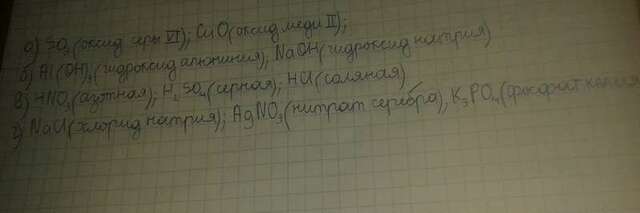 а) SO₃(оксид серы VI); CuO(оксид меди II);
б) Al(OH)₃(гидроксид алюминия); NaOH(гидроксид натрия)
в) HNO₃(азотная); H₂SO₄(серная); HCl(соляная)
г) NaCl(хлорид натрия); AgNO₃(нитрат серебра), K₃PO₄(фосфат калия